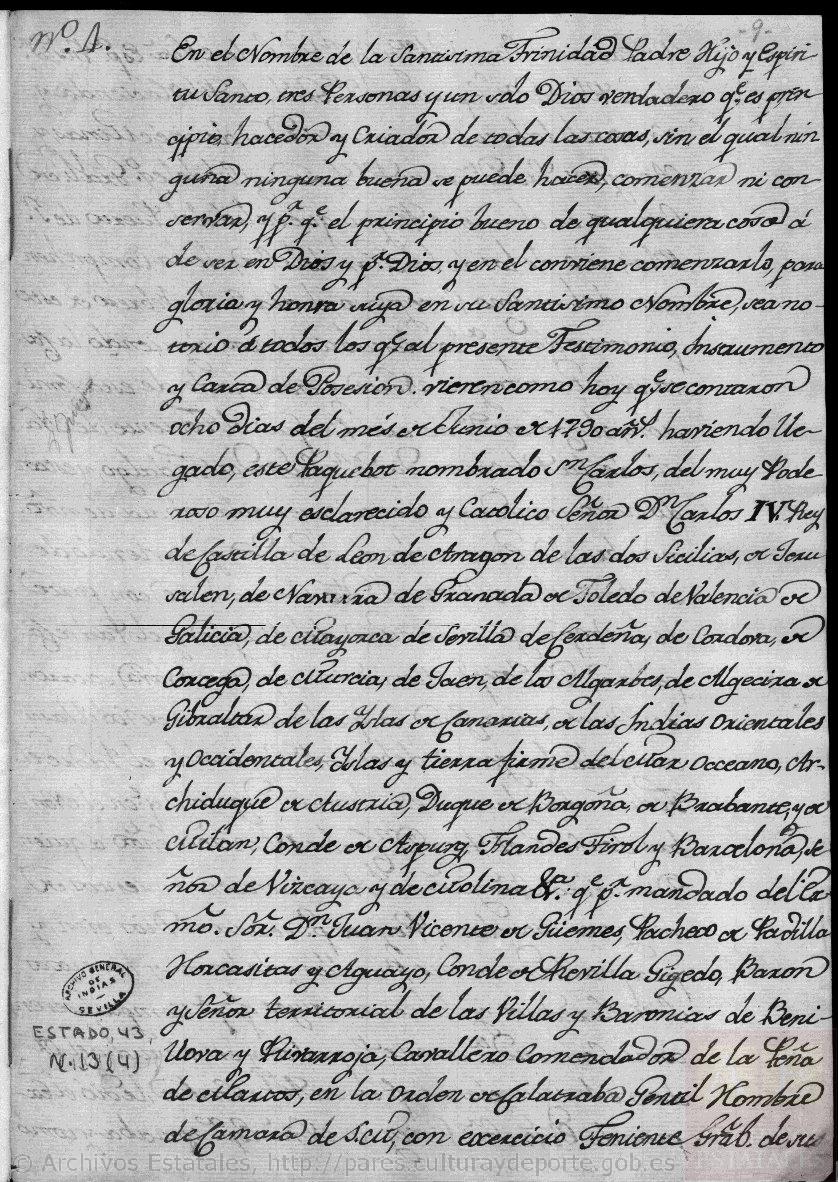 Nº. 4.
-9-
En el Nombre de la Santisima Trinidad Padre Hijo y Espiri-
tu Santo, tres Personas y un solo Dios verdadero qe. es prin
cipio, hacedor y Criador de todas las cosas, sin el qual nin
guna ninguna buena se puede hacer, comenzar ni con
servar, y pr. qe. el principio bueno de qualquiera cosa á
de ser en Dios y pr. Dios, y en el conviene comenzarlo, para
gloria y honra suya en su Santisimo Nombre, sea no-
torio á todos los qe. al presente Testimonio, Instrumento
y Carta de Posesion. vieren como hoy qe. se contaron
ocho dias del més de Junio de 1790 ans. haviendo lle-
gado, este Paquebot nombrado Sn. Carlos, del muy Pode-
roso muy esclarecido y Catolico Señor Dn. Carlos IV. Rey
de Castilla de Leon de Aragon de las dos Sicilias, de Jeru
salen, de Navarra de Granada de Toledo de Valencia de
Galicia, de Mayorca de Sevilla de Cerdeña, de Cordova, de
Corcega, de Murcia, de Jaen, de los Algarbes, de Algecira de
Gibraltar de las Yslas de Canarias, de las Indias Orientales
y Occidentales, Yslas y tierra firme del Mar Occeano, Ar-
chiduque de Austria, Duque de Borgoña, de Brabante, y de
Milan, Conde de Aspurg, Flandes Tirol y Barcelona, Se
ñor de Vizcaya y de Molina &a. qe. pr. mandado del Ex
mo. Sor. Dn. Juan Vicente de Güemes, Pacheco de Padilla
Horcasitas y Aguayo, Conde de Revilla Gigedo, Baron
y Señor territorial de las Villas y Baronias de Beni-
llova y Rivarroja, Cavallero Comendador de la Peña
de Martos, en la Orden de Calatraba Gentil Hombre
de Camara de S.M, con exercicio Teniente Gral. de sus
ARCHIVO GENERAL
DE
INDIAS
SEVILLA
ESTADO, 43,
N. 13 (4)
© Archivos Estatales, http://pares.culturaydeporte.gob.es